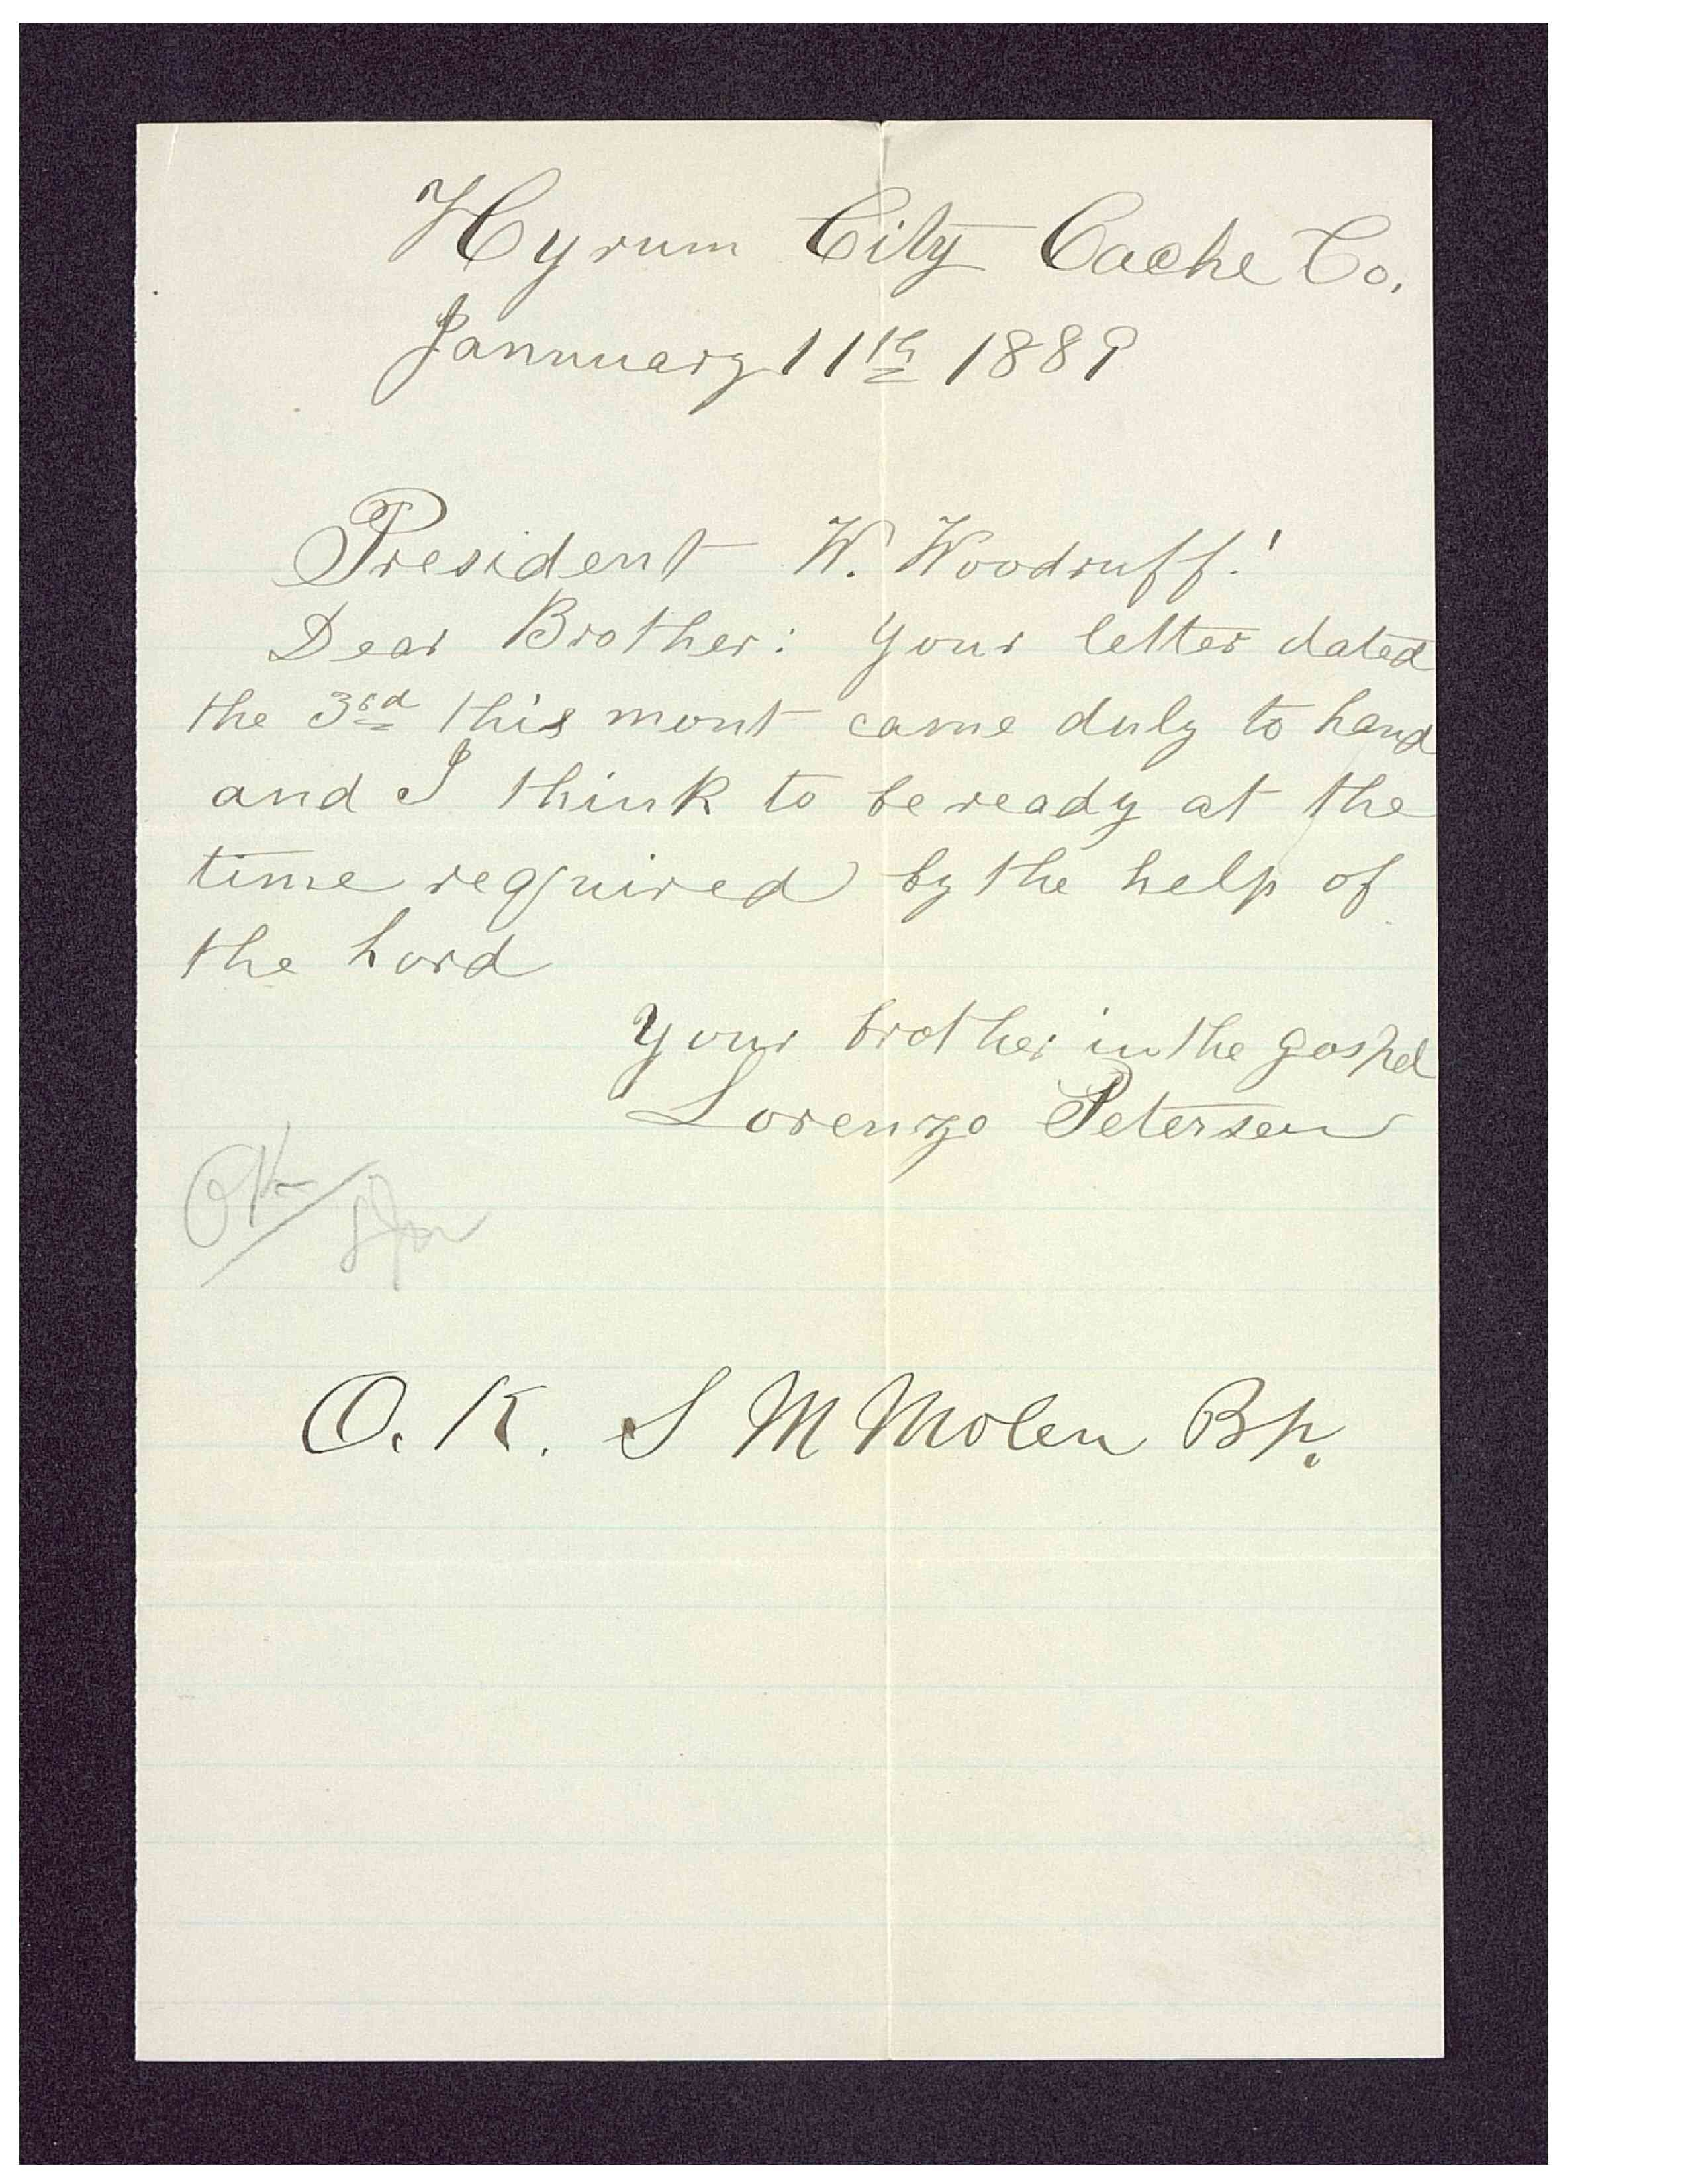 Hyrum City Cache Co.
Jannuary 11th 1889
President W. Woodruff!
Dear Brother: Your letter dated
the 3rd this mont came duly to hand
and I think to be ready at the
time required by the help of
the Lord
Your brother in the gospel
Lorenzo Petersen
OK
O. K. S M Molen Bp.